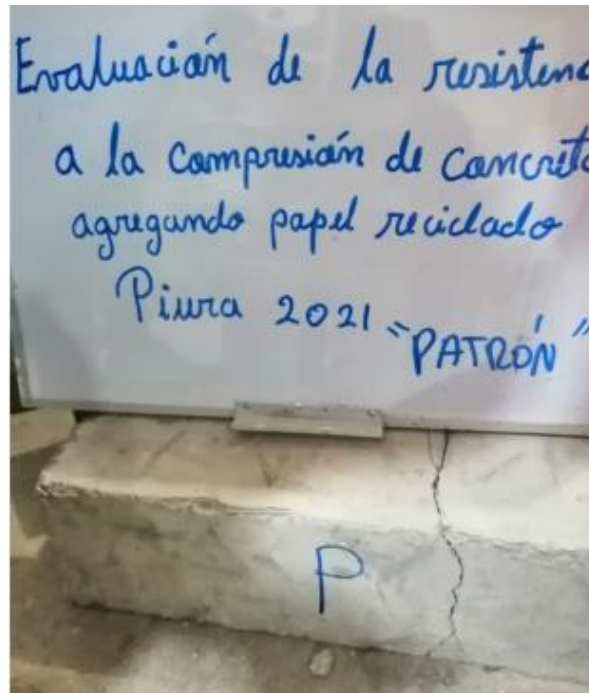 Evaluación de la resistenc
a la compresión de concreto
agregando papel reciclado
Piura 2021 "PATRÓN"
P